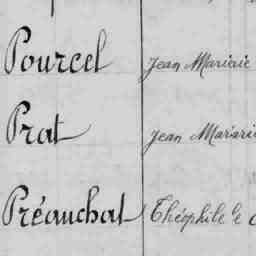 Pourcel Jean Mariaie
Prat Jean Mariari
Préauchat Théophile le